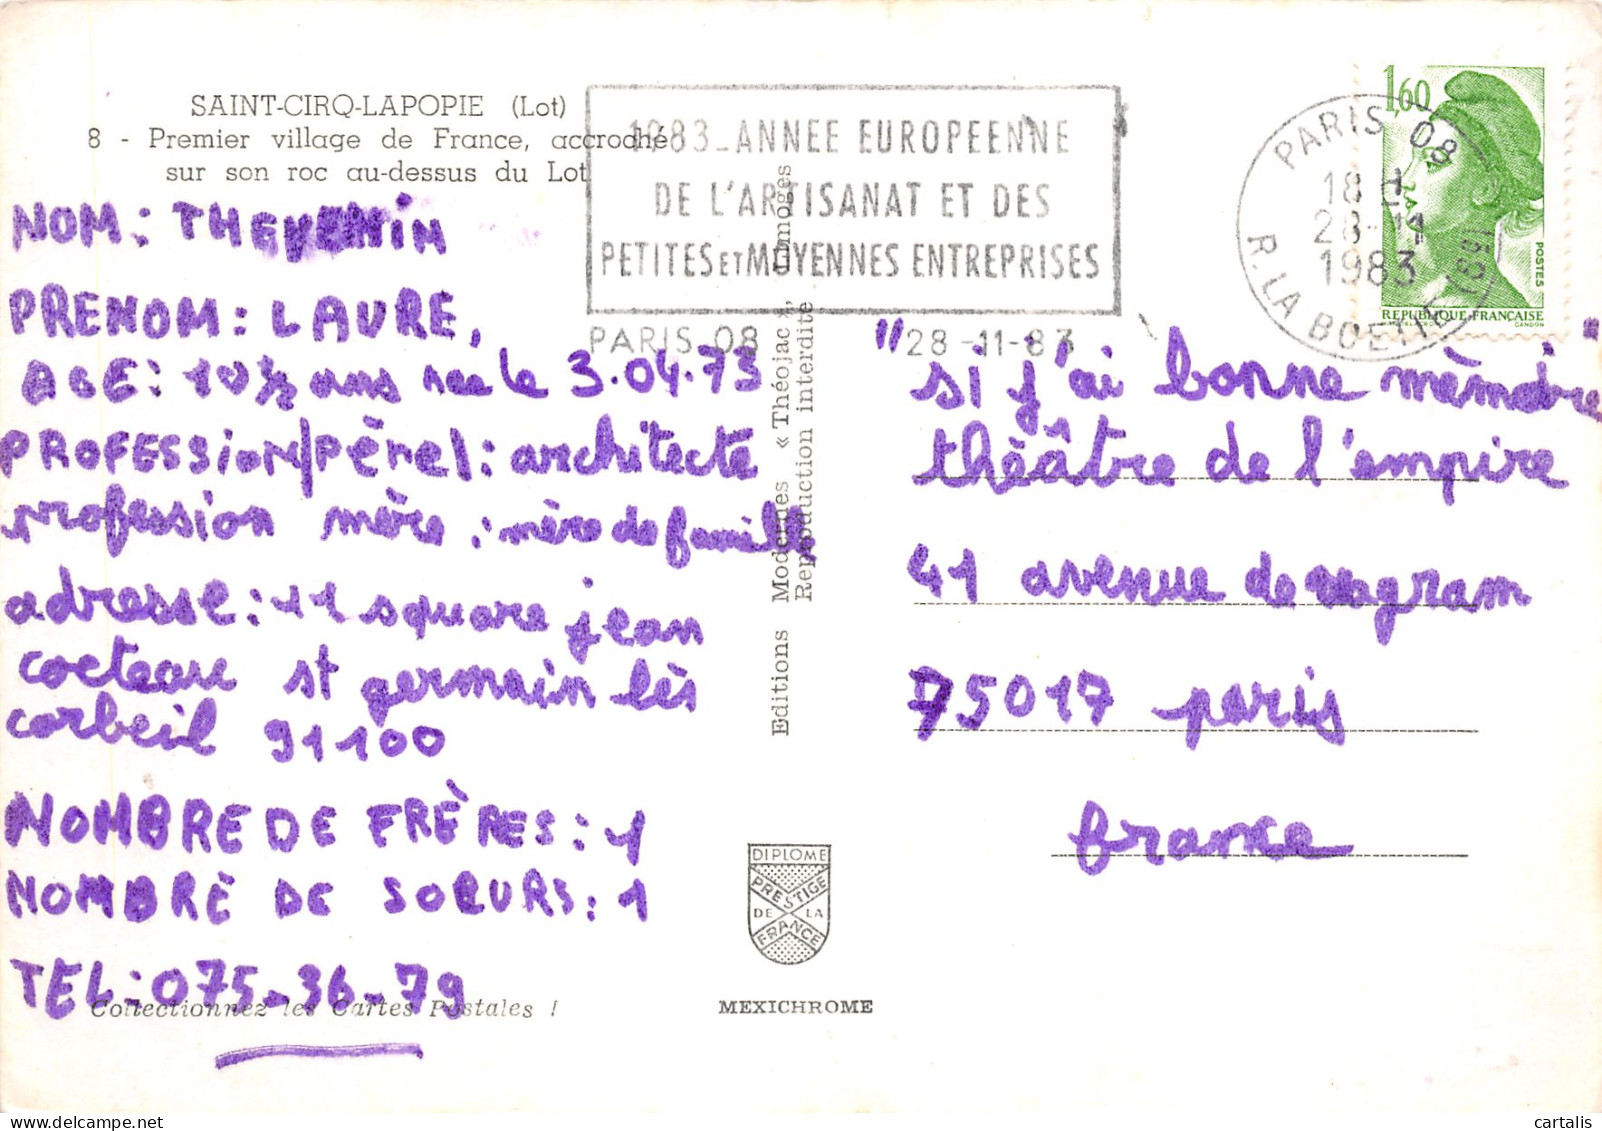 SAINT-CIRQ-LAPOPIE (Lot)
8 - Premier village de France, accroché
sur son roc au-dessus du Lot
NOM: THEVENIN
PRENOM: LAURE,
AGE: 10½ ans née le 3.04.73
PROFESSION/pére/: architecte
profession mère: mère de famille
adresse: 11 square jean
cocteau st germain lès
corbeil 91100
NOMBRE DE FRÈRES: 1
NOMBRE DE SOEURS: 1
TEL: 075-36-79
Collectionnez les Cartes Postales !
1983_ANNEE EUROPEENNE
DE L'ARTISANAT ET DES
PETITES ET MOYENNES ENTREPRISES
PARIS 08
28-11-83
Editions Modernes « Théojac », Limoges
Reproduction interdite
DIPLOME
PRESTIGE
DE LA
FRANCE
MEXICHROME
PARIS 08
18 H
28-11
1983
R. LA BOETIE (8E)
1,60
POSTES
REPUBLIQUE FRANÇAISE
GANDON
"si j'ai bonne mèmoire"
thèâtre de l'empire
41 avenue de wagram
75017 paris
france
cartalis